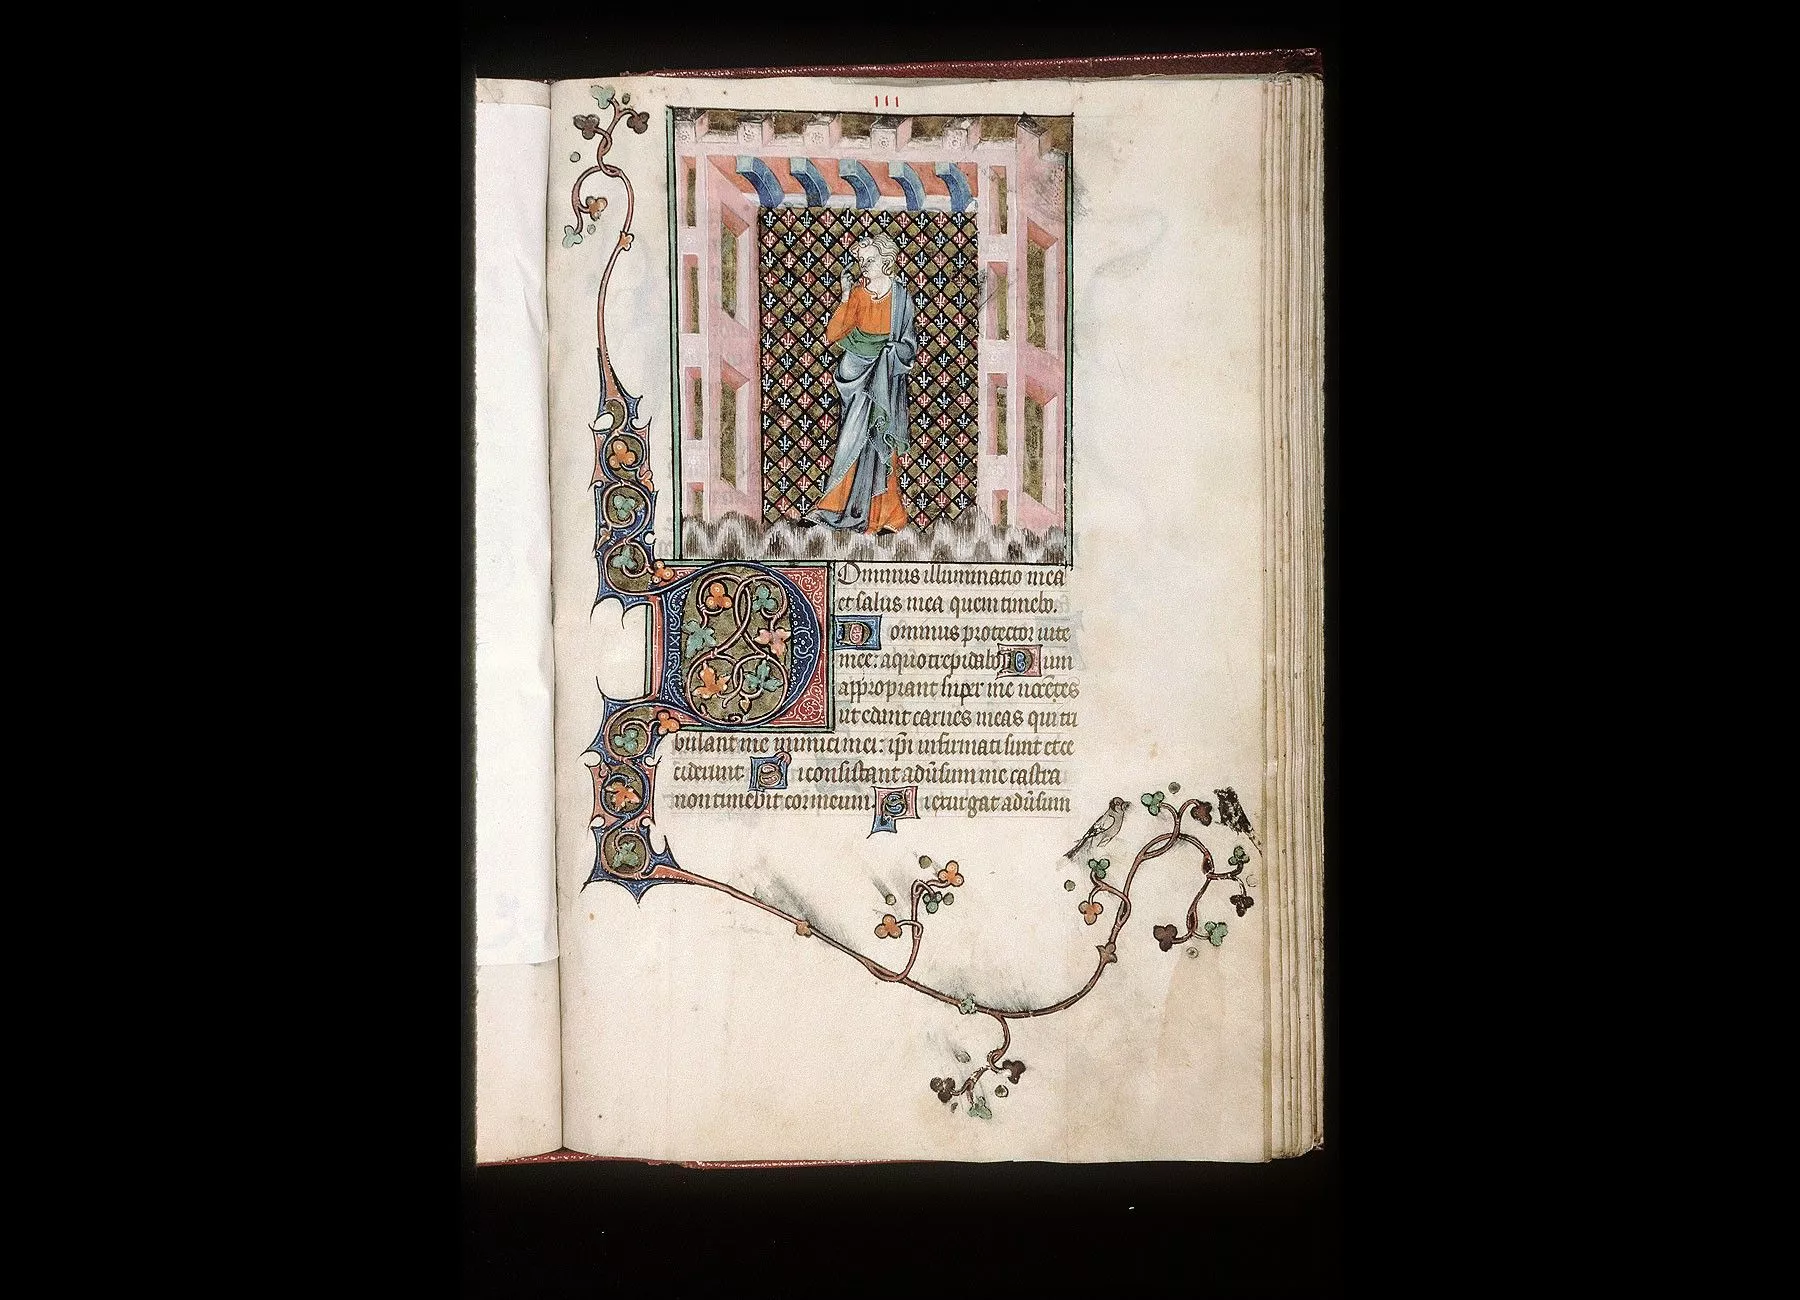 III
Dominus illuminatio mea
et salus mea quem timebo.
Dominus protector uite
mee: a quo trepidabo Dum
appropiant super me nocētes
ut edant carnes meas Qui tri
bulant me inimici mei: ip̄i infirmati sunt et ce
ciderunt Si consistant adūsum me castra
non timebit cor meum. Si exurgat adūsum